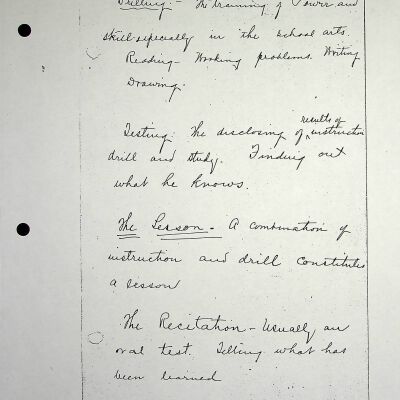 Drilling - The training of Power and
skill especially in the school arts.
Reading - Working problems. Writing
Drawing.
Testing: The disclosing of ^ results of instruction
drill and study. Finding out
what he knows.
The Lesson - A combination of
instruction and drill constitutes
a lesson
The Recitation - Usually an
oral test. Telling what has
been learned